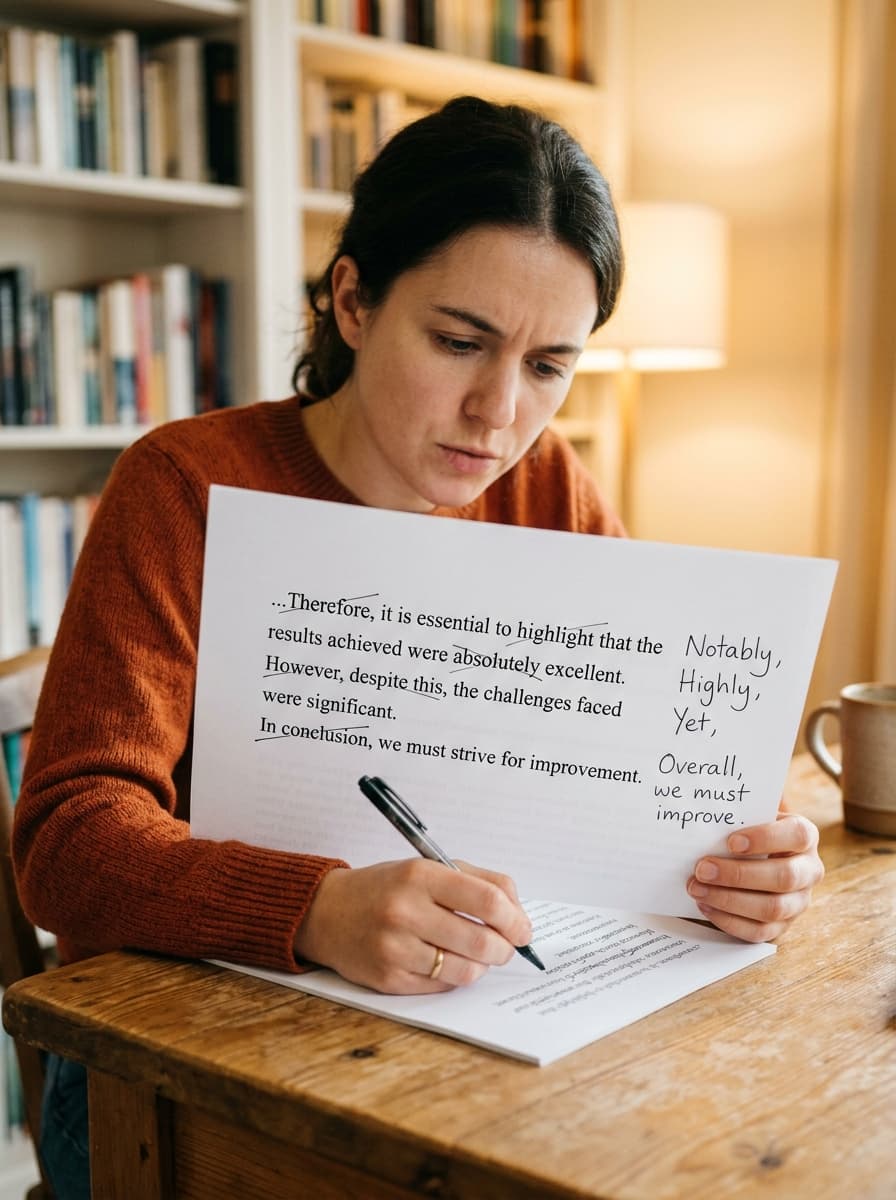 ...Therefore, it is essential to highlight that the
results achieved were absolutely excellent.
However, despite this, the challenges faced
were significant.
In conclusion, we must strive for improvement.
Notably,
Highly,
Yet,
Overall,
we must
improve.